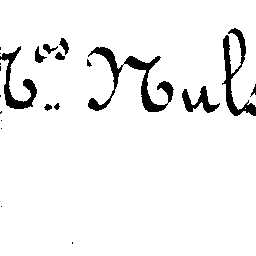 Nᵒˢ Nuls